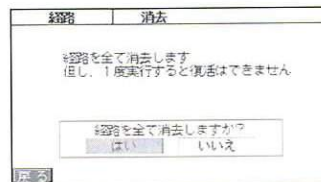 経路 消去
経路を全て消去します
但し、1度実行すると復活はできません
経路を全て消去しますか?
はい いいえ
戻る